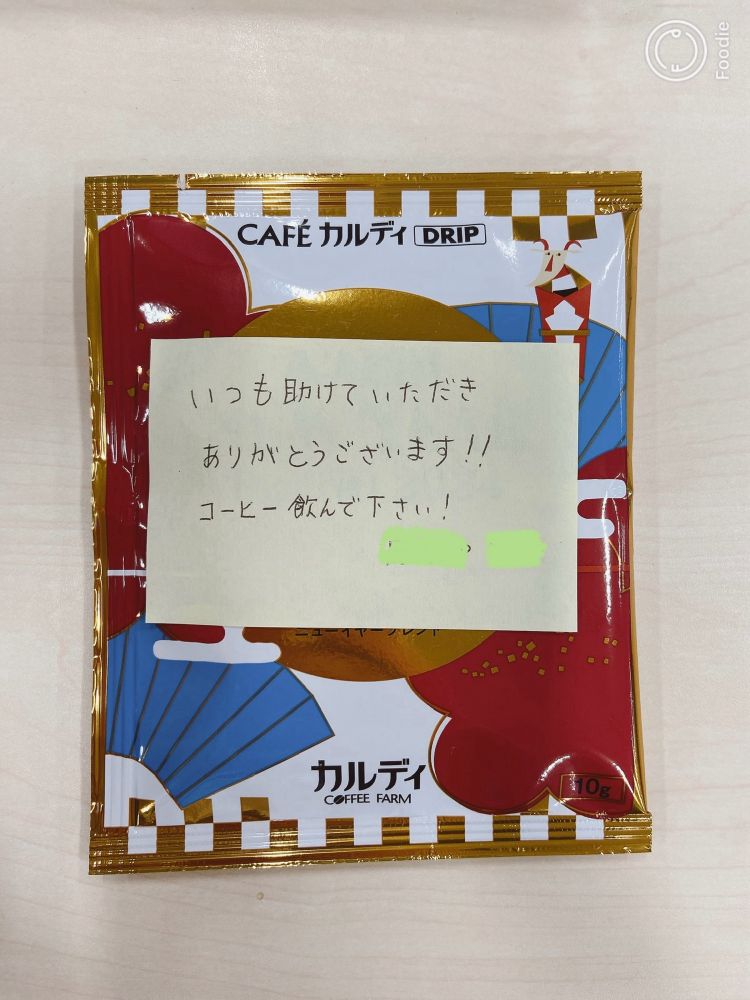 Foodie
CAFÉ カルディ DRIP
いつも助けていただき
ありがとうございます!!
コーヒー飲んで下さい!
ニューイヤーブレンド
カルディ
COFFEE FARM
10g